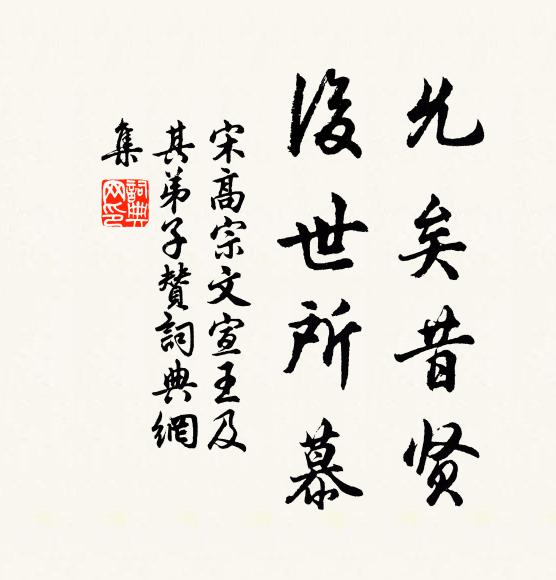 允矣昔贤
後世所慕
宋高宗文宣王及
其弟子赞詞典網
集
詞典
网印